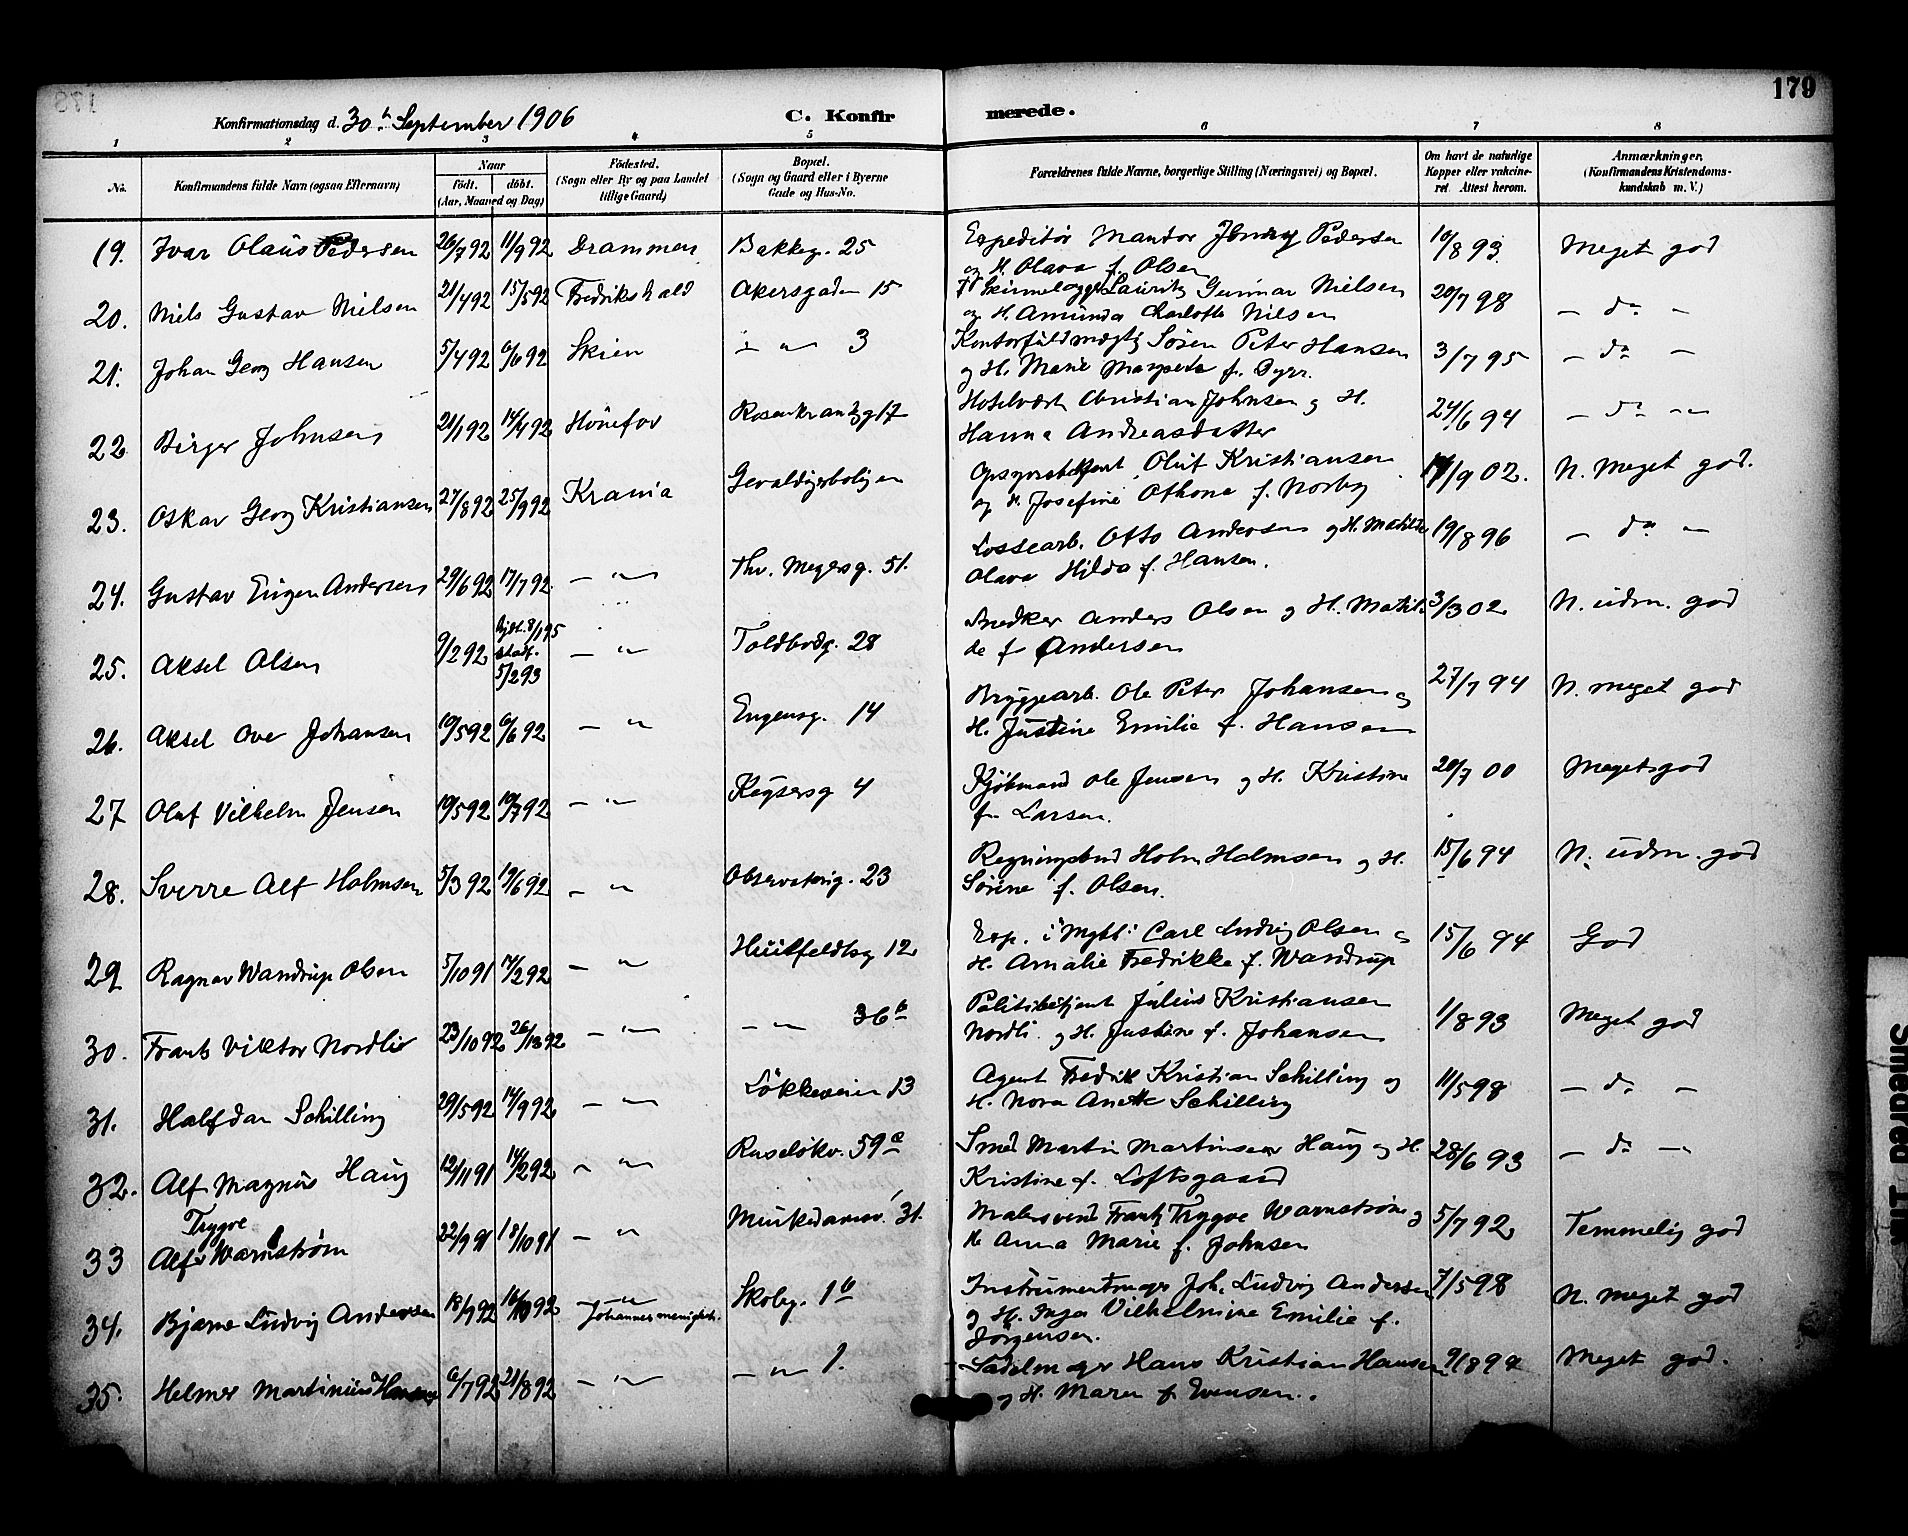 179
Konfirmationsdag d. 30. September 1906
C. Konfirmerede.
1 2 3 4 5 6 7 8
No.
Konfirmandens fulde Navn (ogsaa Efternavn)
Naar
født. døbt.
(Aar, Maaned og Dag)
Födested.
(Sogn eller By og paa Landet
tillige Gaard)
Bopæl.
(Sogn og Gaard eller i Byerne
Gade og Hus-No.
Forældrenes fulde Navne, borgerlige Stilling (Næringsvei) og Bopæl.
Om havt de naturlige
Kopper eller vakcine-
ret. Attest herom.
Anmærkninger.
(Konfirmandens Kristendoms-
kundskab m. V.)
19. Ivar Olaus Pedersen 26/7 92 11/9 92 Drammen Bakkeg. 25 Expeditør Pedersen 10/8 93 Meget god
og H. Olava f. Olsen
20. Niels Gustav Nielsen 21/4 92 15/5 92 Fredrikshald Akersgaden 15 Lauritz Gunnar Nielsen 20/7 98 – do –
og H. Amunda Charlotte Nilsen
21. Johan Georg Hansen 5/4 92 6/6 92 Skien – " – 3 Kontorfuldmægtig Søren Peter Hansen 3/7 95 – do –
og H. Marie Margrete f.
22. Birger Johnsen 21/1 92 14/4 92 Hönefos Rosenkrantzg 17 Hotelvært Christian Johnsen og H. 24/6 94 – do –
Hanna Andreasdatter
23. Oskar Georg Kristiansen 27/8 92 25/9 92 Krania Gevaldigerboligen Opsynsbetjent Oluf Kristiansen 9 02. N. meget god.
og H. Josefine Othona f. Norby
24. Gustav Eugen Andersen 29/6 92 17/7 92 – " – Thv. Meyersg. 51. Lossearb. Otto Andersen og H. Matilde 19/8 96 – do –
Olava Hilda f. Hansen.
25. Aksel Olsen 9/2 92 stadf. 5/2 93 – " Toldbodg. 28 Snedker Anders Olsen og H. Matil- 3/3 02 N. udm. god
de f. Andersen
26. Aksel Ove Johansen 10/5 92 6/6 92 – " Engensg. 14 Bryggearb. Ole Peter Johansen og 27/7 94 N. meget god
H. Justine Emilie f. Hansen
27 Oluf Vilhelm Jensen 19/5 92 10/7 92 – " – Keysersg 4 Kjöbmand Ole Jensen og H. Kristine 20/7 00 Meget god
f. Larsen.
28. Sverre Alf Holmsen 5/3 92 19/6 92 – " Observatorig. 23 Regningsbud Holm Holmsen og H. 15/6 94 N. udm. god
Sørine f. Olsen.
29 Ragnar Wandrup Olsen 5/10 91 17/2 92 – " Huitfeldtsg 12 Exp. i Carl Ludvig Olsen og 15/6 94 God
H. Amalie Fredrikke f. Wandrup
30. Frantz Viktor Nordlie 23/10 92 26/12 92 – " – – " – 36 b Politibetjent Julius Kristiansen 1/8 93 Meget god
Nordli og H. Justine f. Johansen
31. Halfdan Schilling 29/5 92 14/9 92 – " – Lökkeveien 13 Agent Fredrik Kristian Schilling og 11/5 98 – do –
H. Nora Anette Schilling
32. Alf Magnus Haug 12/11 91 14/2 92 – " Ruseløkv. 59 a Smed Martin Martinsen Haug og H. 28/6 93 – do –
Kristine f. Loftsgaard
Trygve
33 Alf Warnstrøm 22/9 91 18/10 91 – " Munkedamsv. 31. Malersvend Frantz Trygve Warnstrøm og 5/7 92 Temmelig god
H. Anna Marie f. Johnsen
34. Bjarne Ludvig Andersen 18/9 92 16/10 92 – " – Skolg. 1 b Instrumentmager Joh. Ludvig Andersen 7/5 98 N. meget god
Johannes menighet. og H. Inga Vilhelmine Emilie f.
Jørgensen.
35. Helmer Martinius Hansen 6/7 92 21/8 92 – " – – " – 1. Sadelmager Hans Kristian Hansen 9/8 94 Meget god.
og H. Maren f. Evensen.